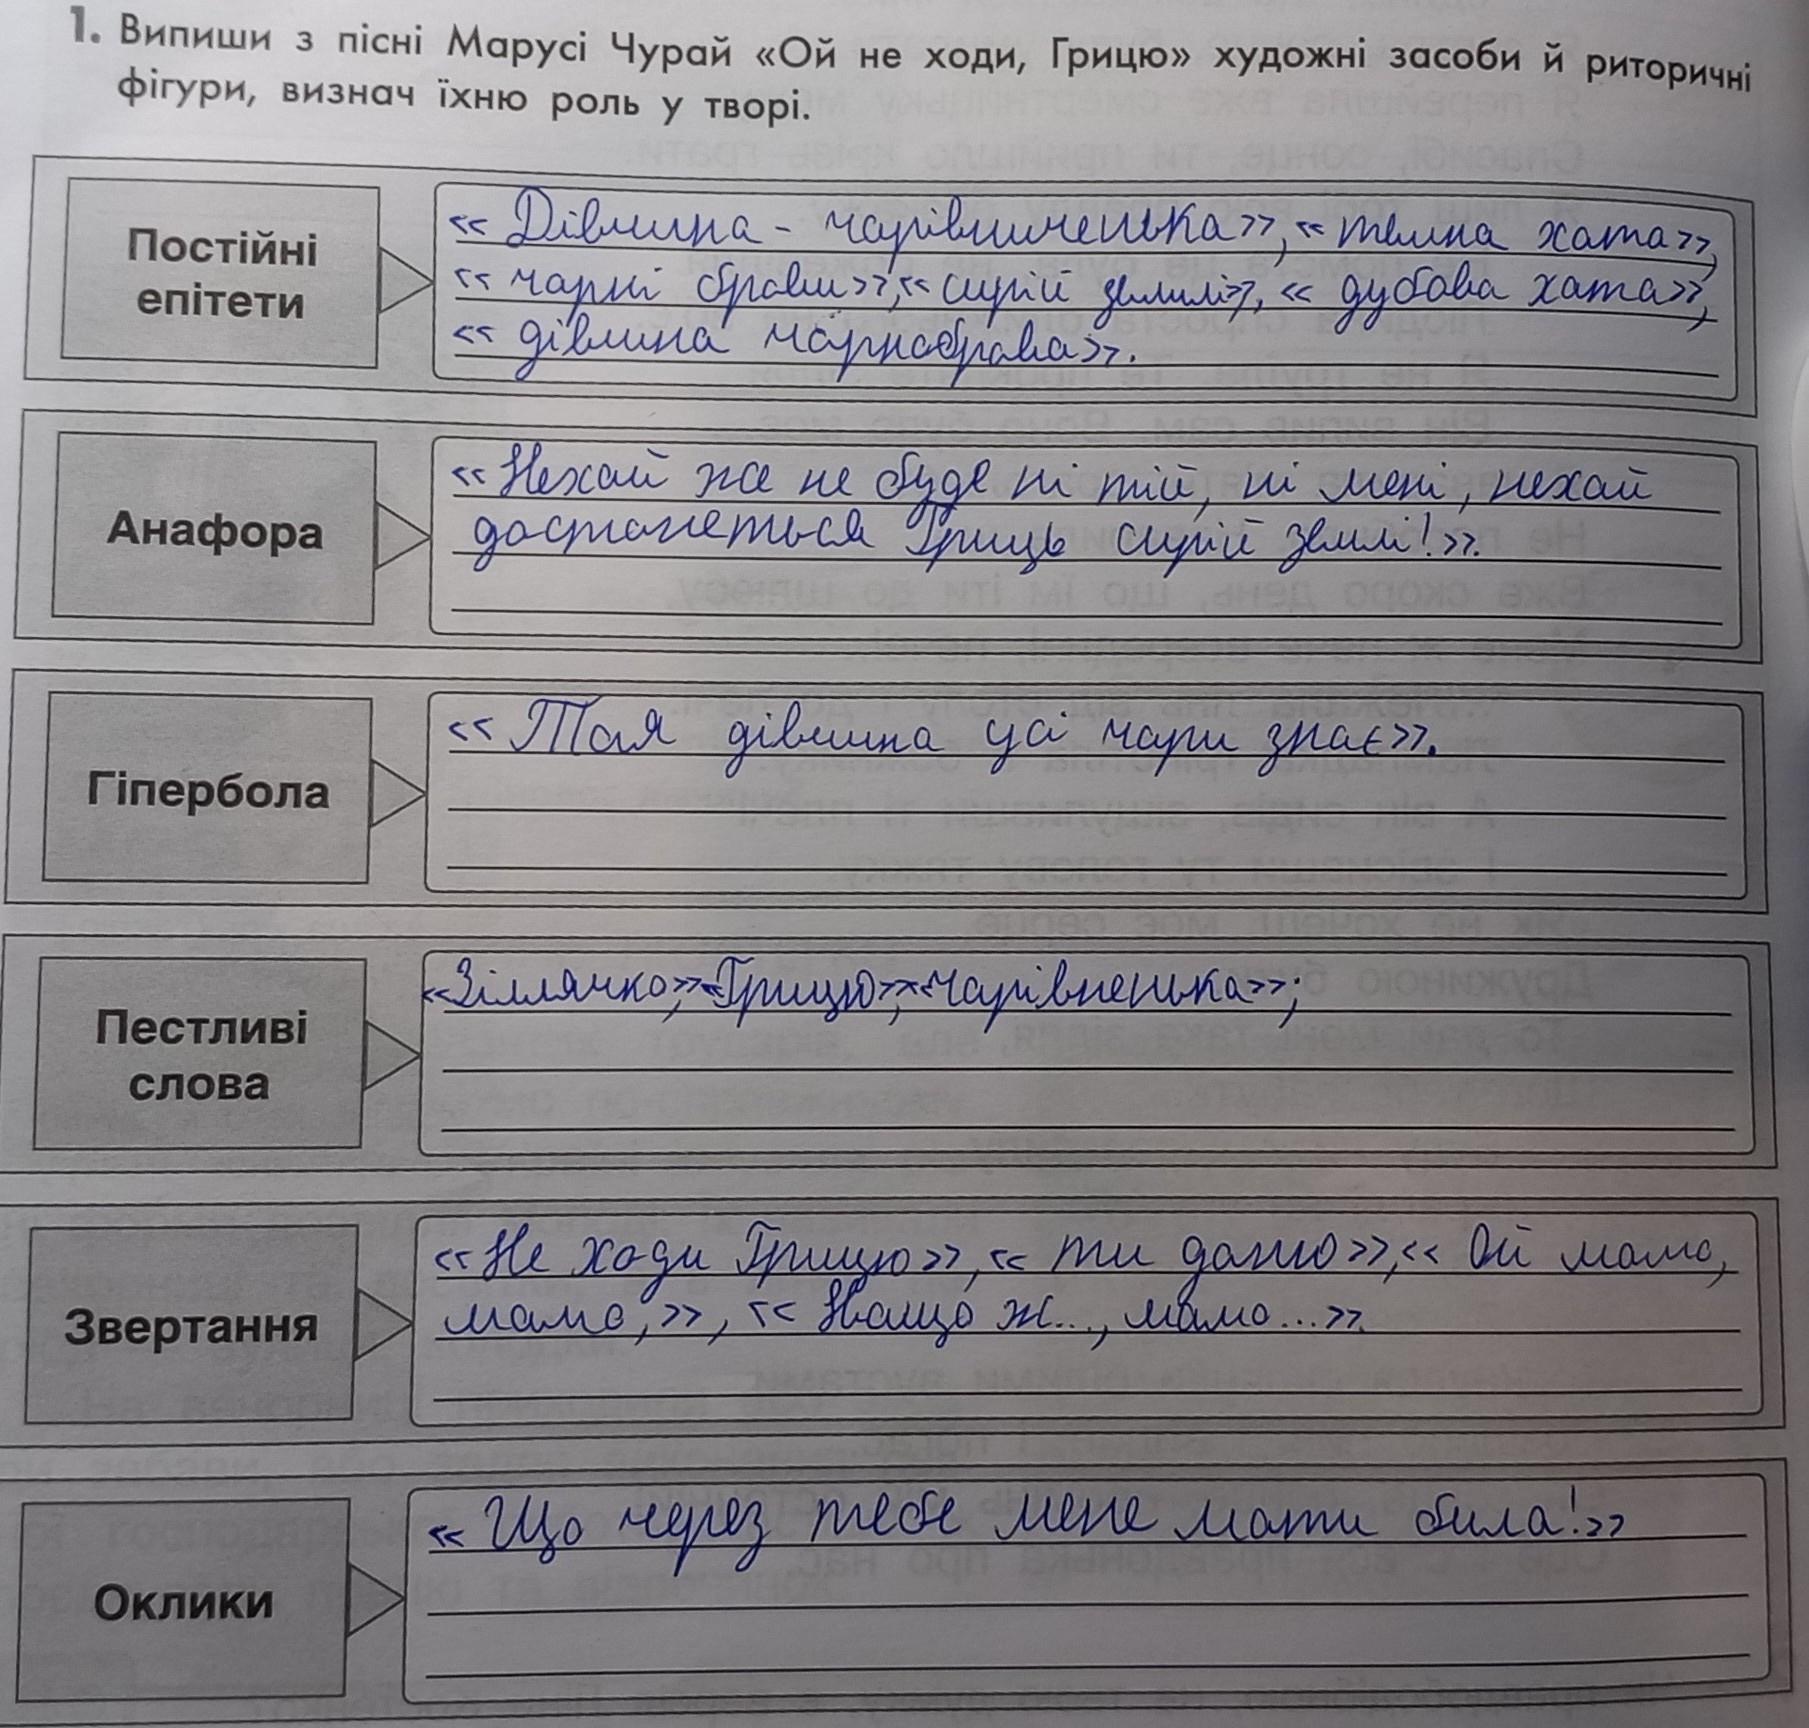 1. Випиши з пісні Марусі Чурай «Ой не ходи, Грицю» художні засоби й риторичні
фігури, визнач їхню роль у творі.
Постійні
епітети
«Дівчина - чарівниченька», «темна хата»,
«чарні брови», «сирій землі», «дубова хата»,
«дівчина чарноброва».
Анафора
«Нехай же не буде ні тій, ні мені, нехай
достанеться Гриць сирій землі!».
Гіпербола
«Тая дівчина усі чари знає».
Пестливі
слова
«Зіллячко», «Грицю», «чарівненька»;
Звертання
«Не ходи Грицю», «ти доню», «Ой мамо,
мамо,», «Нащо ж..., мамо...».
Оклики
«Що через тебе мене мати била!»